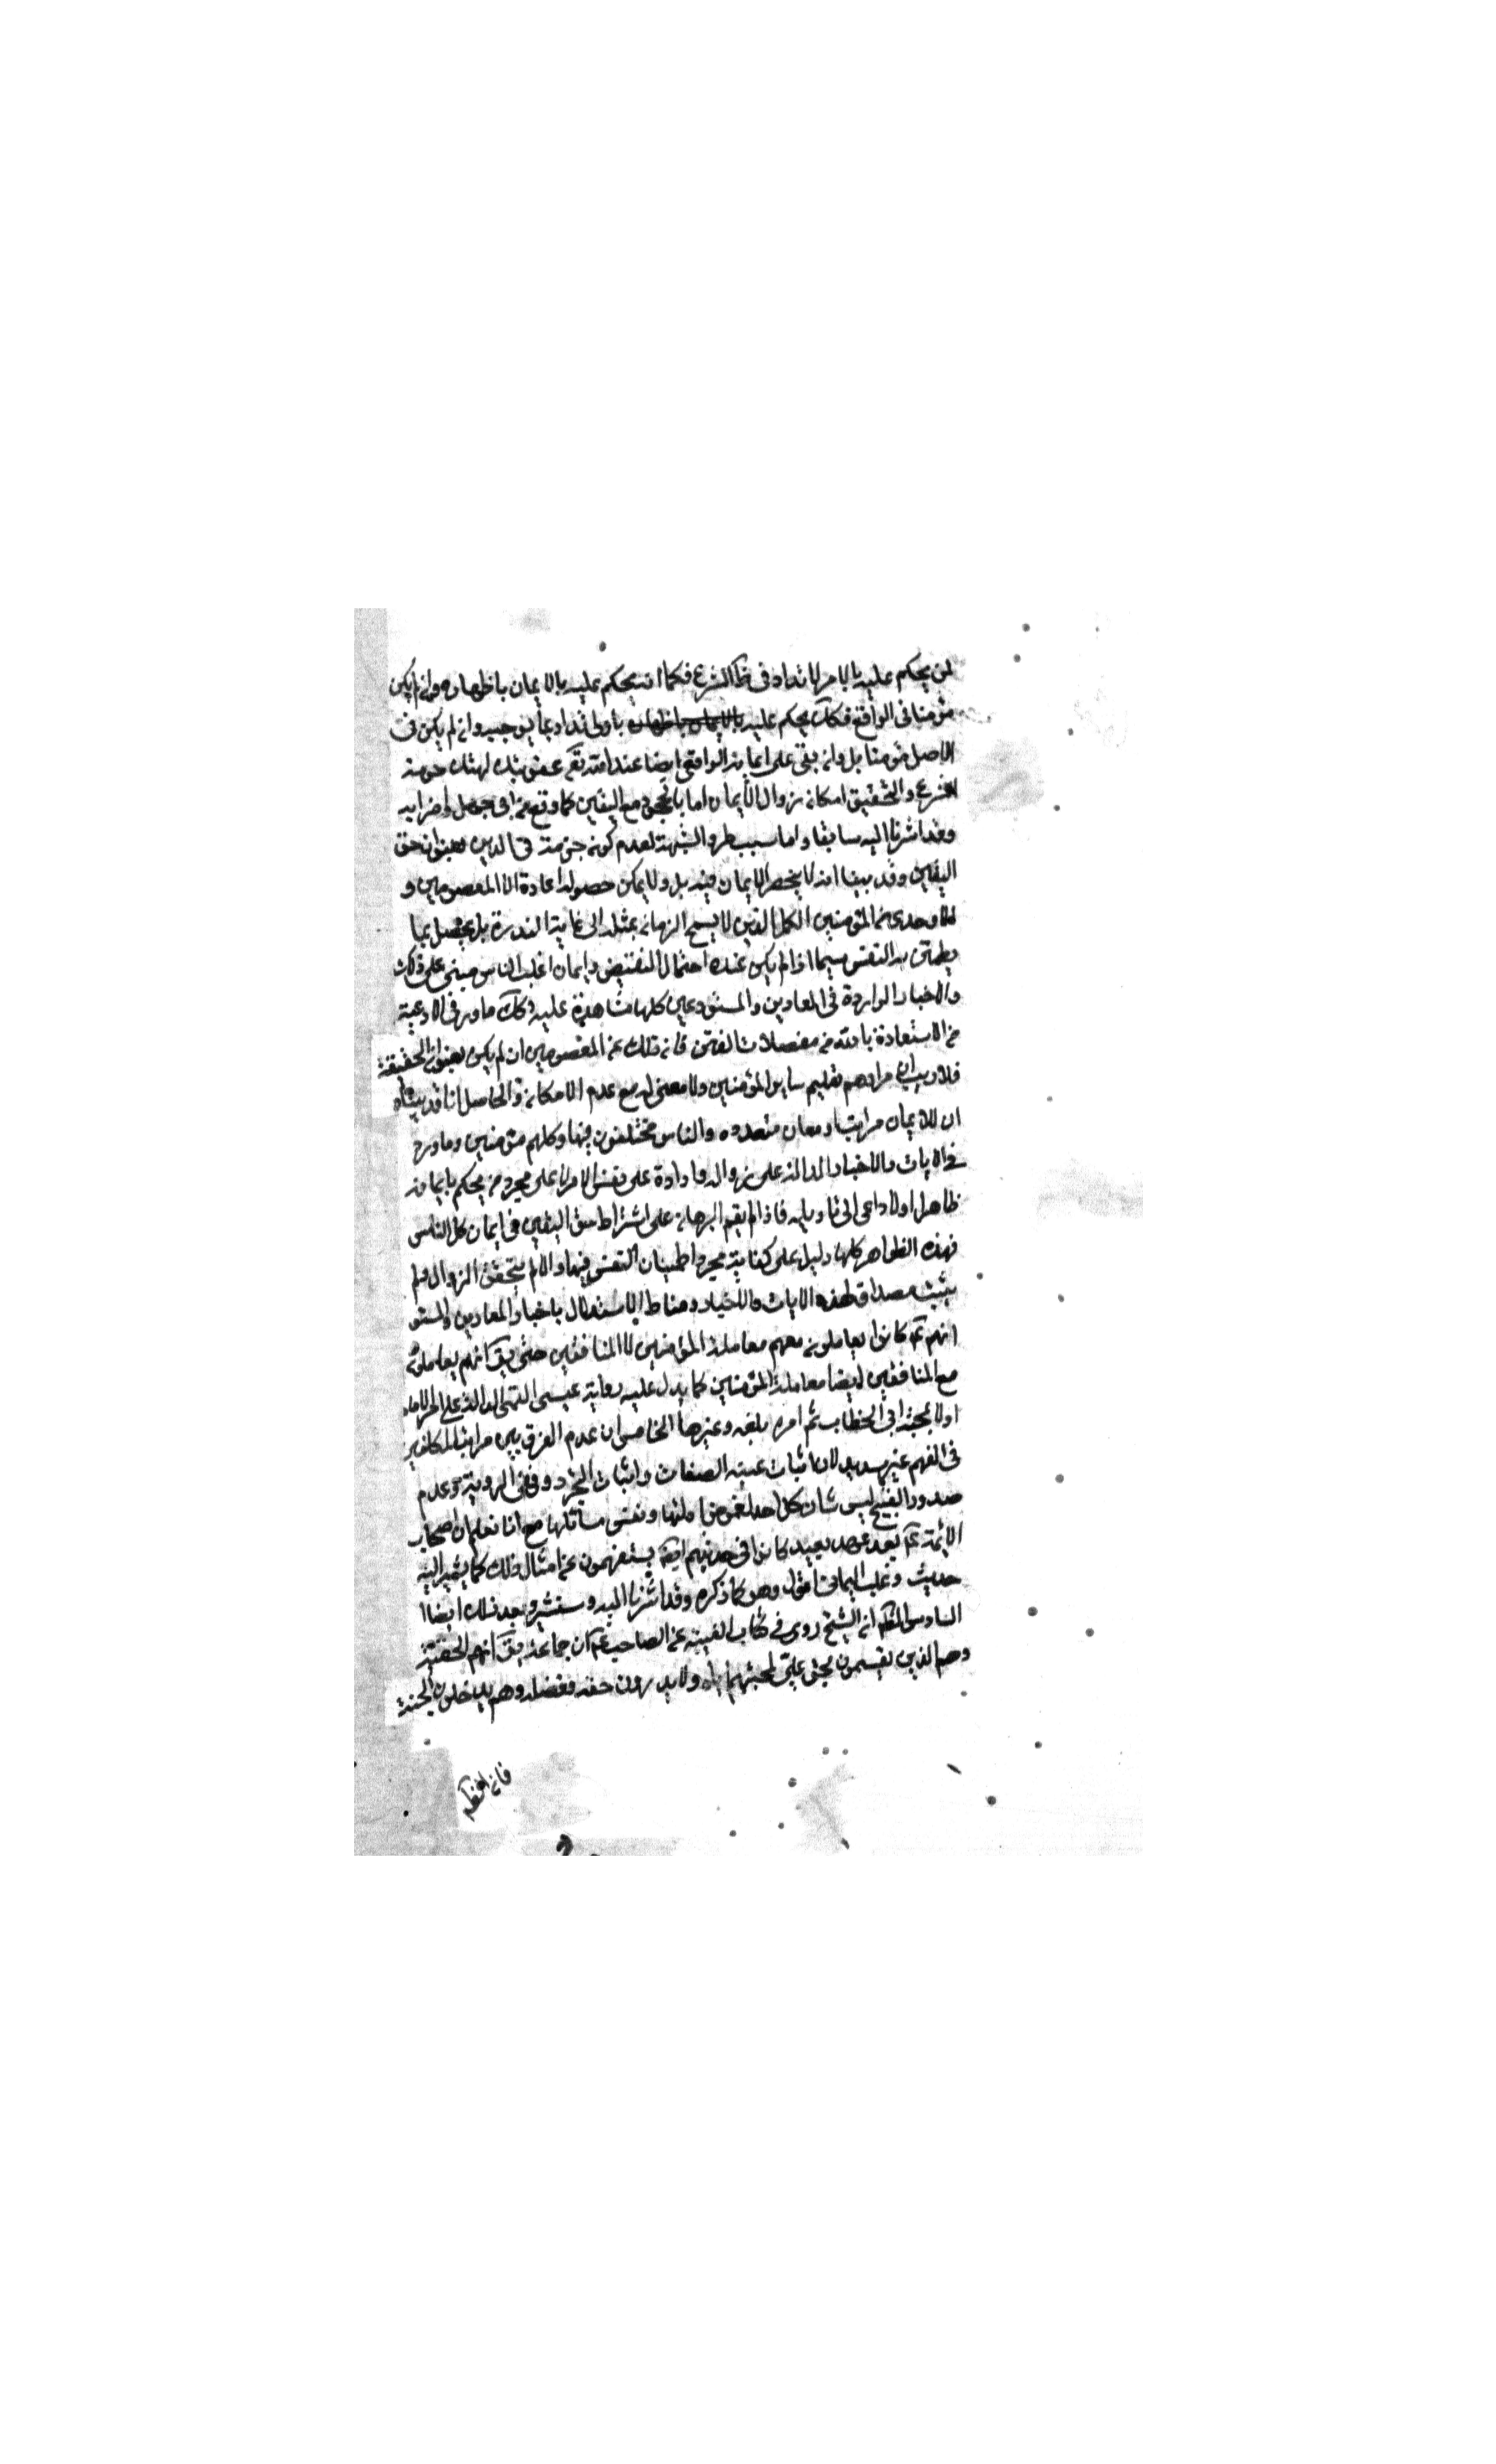 لمن يحكم عليه بالامر الارتداد في ظ الشرع فكما انه يحكم عليه بالايمان باظهاره وان لم يكن
مؤمنا في الواقع فكك يحكم عليه بالايمان باظهاره بارتداد بما يوجبه وان لم يكن في
الاصل مؤمنا بل وان بقى على ايمانه الواقعي ايضا عند الله تع عقوبة لهتك حرمة
الشرع والتحقيق امكان زوال الايمان اما بالجحود مع اليقين كما وقع من ابى جهل واضرابه
وقد اشرنا اليه سابقا واما بسبب طرو الشبهة لعدم كونه جزمه في الدين بعنوان حق
اليقين وقد بينا انه لا ينحصر الايمان فيه بل ولا يمكن حصوله عادة الا المعصومين و
الاوحدى من المؤمنين الكمل الذين لا يسمح الزمان بمثله الى غاية الندرة بل يحصل بما
يطمئن به النفس سيما اذا لم يكن عنده احتمال النقيض وايمان اغلب الناس مبنى على ذلك
والاخبار الواردة في المعارين والمستودعين كلها شاهدة عليه وكك ما ورد في الادعية
من الاستعاذة بالله من معضلات الفتن فان ذلك عن المعصومين ان لم يكن بعنوان الحقيقة
فلا ريب ان مرادهم تعليم ساير المؤمنين ولا معنى له مع عدم الامكان والحاصل انا قد بيناه
ان للايمان مراتب ومعان متعدده والناس مختلفون فيها وكلهم مؤمنين وما ورد
في الايات والاخبار الدالة على زواله واردة على نفس الامر لا على مجرد من يحكم بايمانه
ظاهرا ولا داعى الى تاويله فاذا لم يقم البرهان على اشتراط حق اليقين في ايمان كل الناس
فهذه الظواهر كلها دليل على كفاية مجرد اطمينان النفس فيها والا لم يتحقق الزوال ولم
يثبت مصداق لهذه الايات والاخبار ومناط الاستدلال باخبار المعارين والمستو
انهم ع كانوا يعاملون معهم معاملة المؤمنين لا المنافقين حتى يق انهم يعاملون
مع المنافقين ايضا معاملة المؤمنين كما يدل عليه رواية عيسى الدالة على امر الامام
اولا بمحبة ابى الخطاب ثم امره بلعنه وغيرها الخامس ان عدم الفرق بين مراتب المكلفين
في الفهم غير سديد لان اثبات عينية الصفات واثبات التجرد ونفى الروية وعدم
صدور القبيح ليس شان كل احد لغموض ادلتها ونفس مسائلها مع انا نعلم ان اصحاب
الائمة ع بعد عهد بعيد كانوا في خدمتهم ايض يستفهمون عن امثال ذلك كما يشير اليه
حديث اليماني اقول وهو كما ذكره وقد اشرنا اليه وسنشير بعد ذلك ايضا
السادس ان الشيخ روى في كتاب الغيبة عن الصاحب ع ان جماعة يق انهم الحقية
وهم الذين يقسمون بحق على لمحبتهم اياه ولا يدرون حقه وفضله وهم يدخلون الجنة